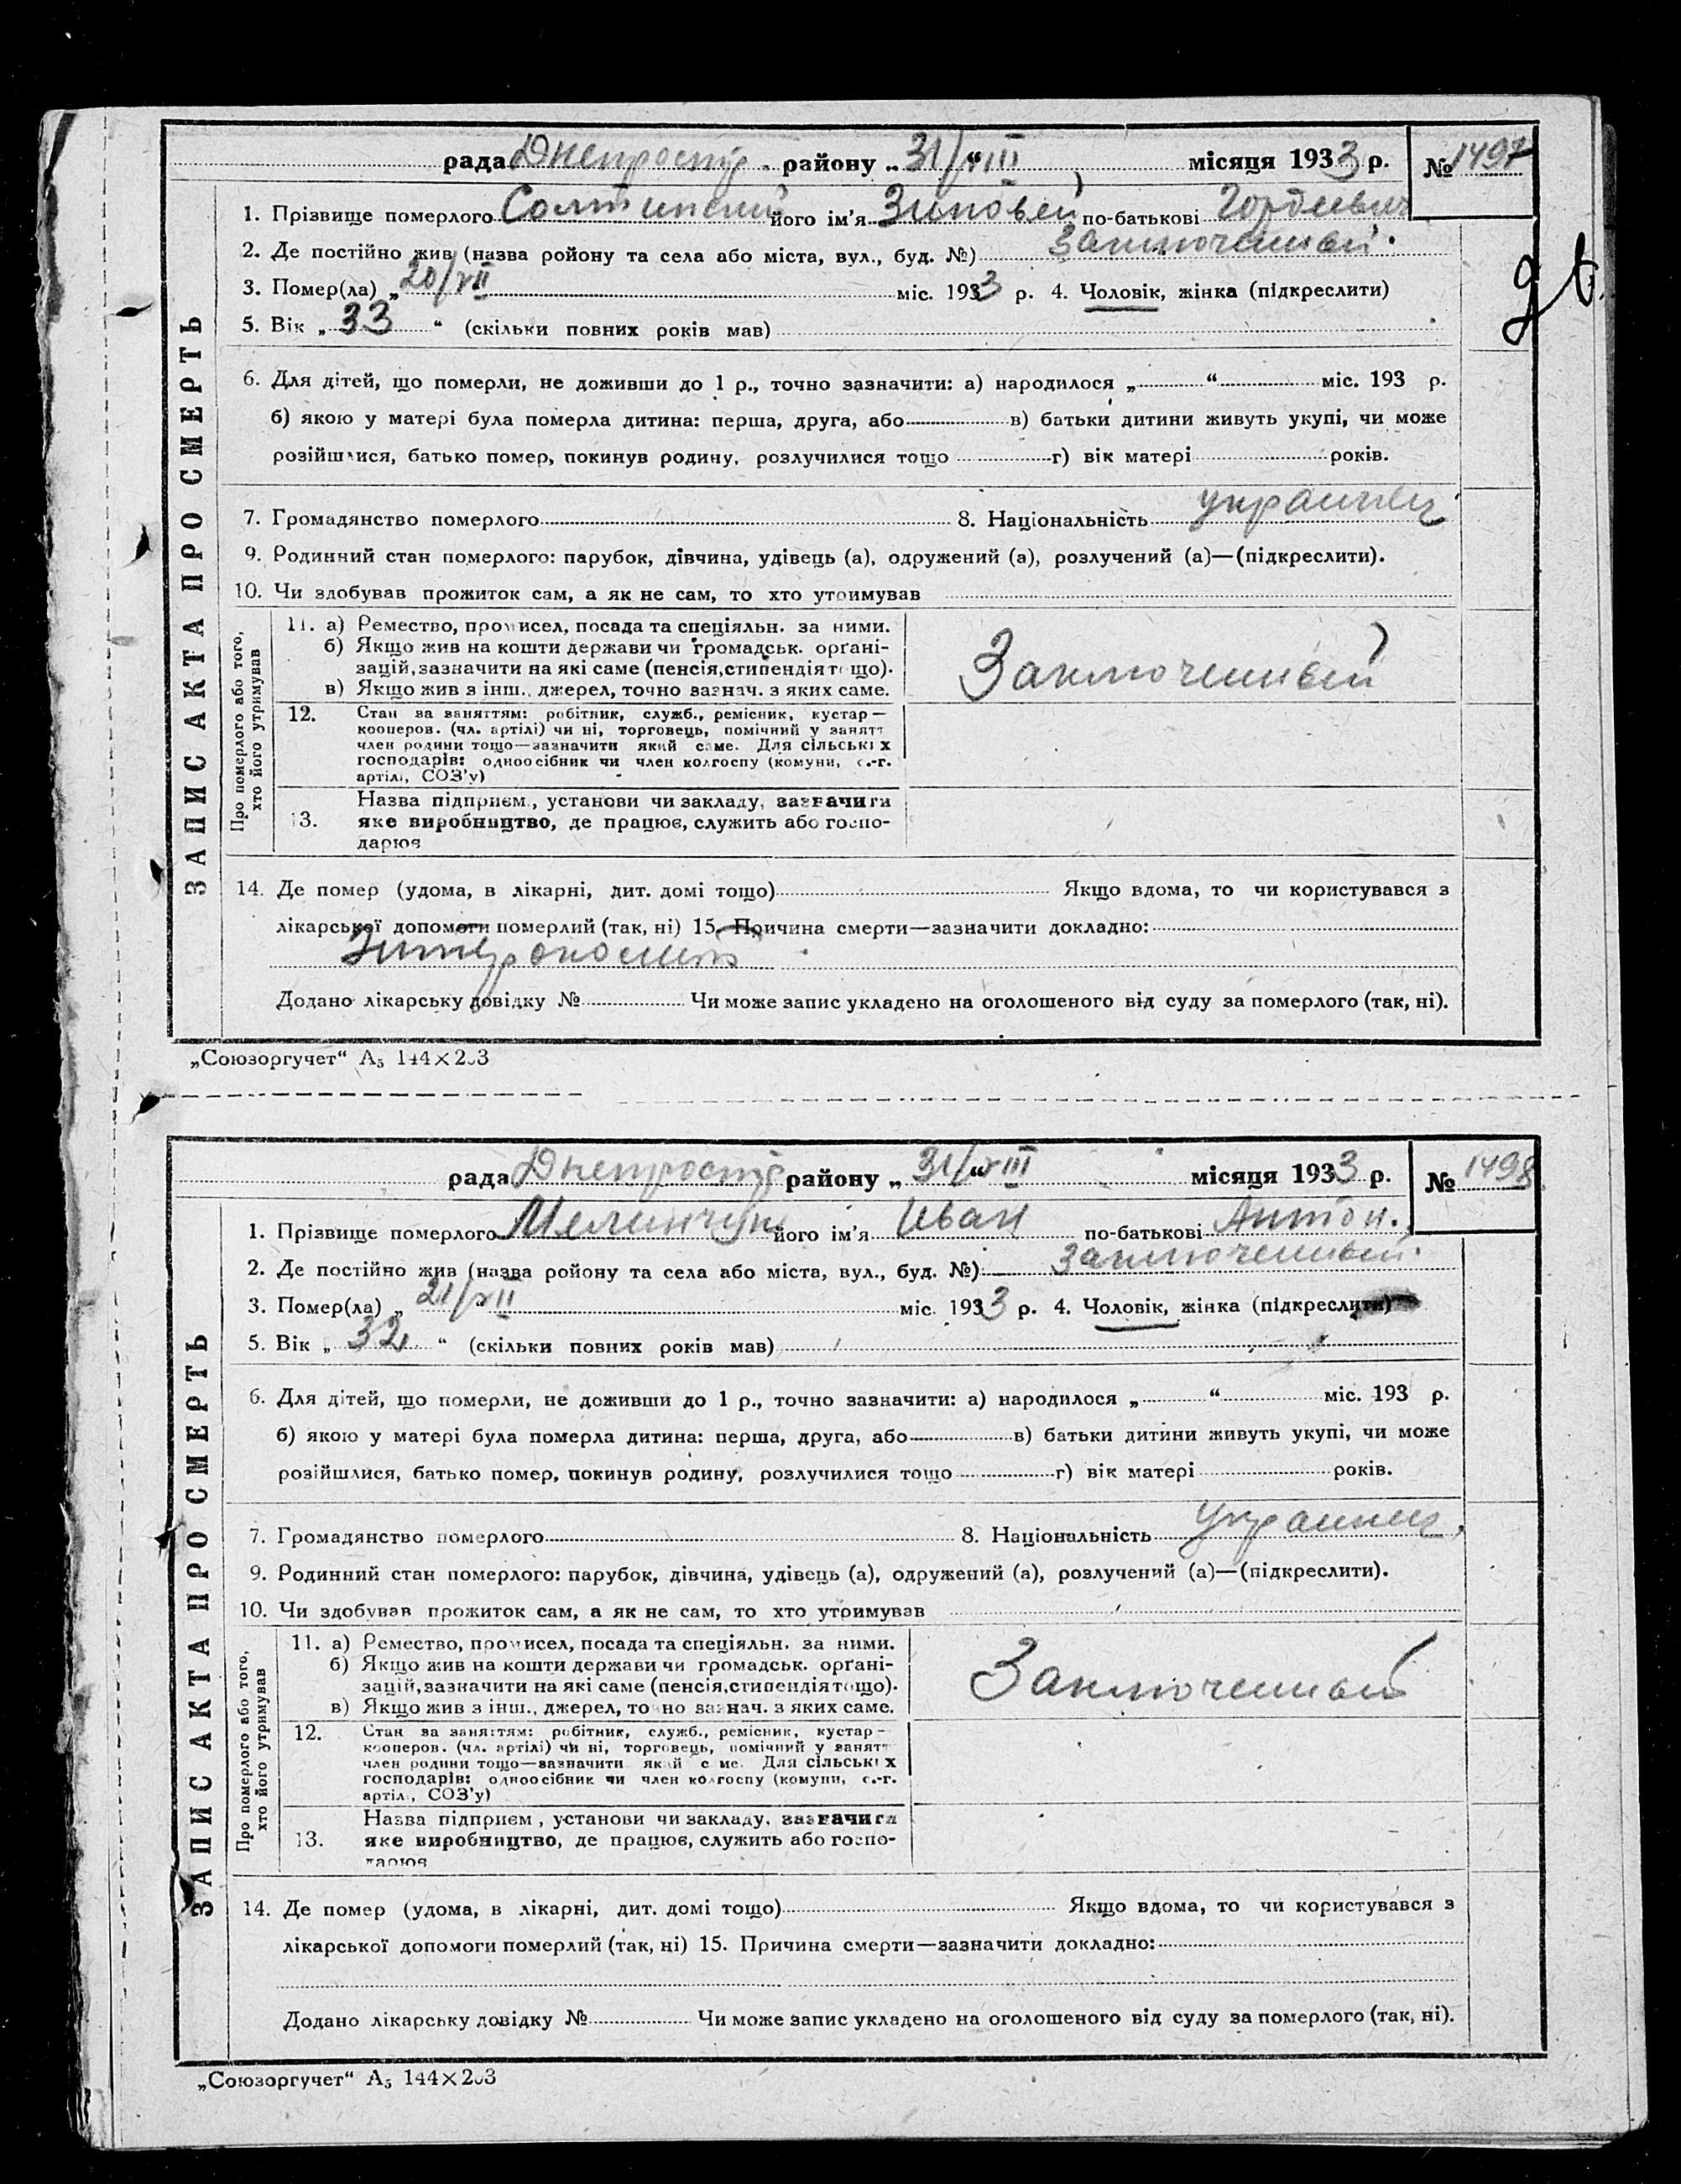 рада Днепрострр. району „31/VIII“ місяця 1933 р. № 1497
1. Прізвище померлого Солтинский його ім'я Зиновей по-батькові Гордеевич
2. Де постійно жив (назва ройону та села або міста, вул., буд. №) Заключенный.
3. Помер(ла) „20/VII міс. 1933 р. 4. Чоловік, жінка (підкреслити)
5. Вік „33“ (скільки повних років мав)
6. Для дітей, що померли, не доживши до 1 р., точно зазначити: а) народилося „ “ міс. 193 р.
б) якою у матері була померла дитина: перша, друга, або в) батьки дитини живуть укупі, чи може
розійшлися, батько помер, покинув родину, розлучилися тощо г) вік матері років.
7. Громадянство померлого 8. Національність украинец
9. Родинний стан померлого: парубок, дівчина, удівець (а), одружений (а), розлучений (а)—(підкреслити).
10. Чи здобував прожиток сам, а як не сам, то хто утримував
Про померлого або того,
хто його утримував
11. а) Ремество, промисел, посада та спеціяльн. за ними.
б) Якщо жив на кошти держави чи громадськ. орґані-
зацій, зазначити на які саме (пенсія, стипендія тощо).
в) Якщо жив з інш., джерел, точно зазнач. з яких саме.
Заключенный
12. Стан за заняттям: робітник, служб., ремісник, кустар—
кооперов. (чл. артілі) чи ні, торговець, помічний у занятт
член родини тощо—зазначити який саме. Для сільських
господарів: одноосібник чи член колгоспу (комуни, с.-г.
артілі, СОЗ'у)
13. Назва підприєм., установи чи закладу, зазначити
яке виробництво, де працює, служить або госпо-
дарює
14. Де помер (удома, в лікарні, дит. домі тощо) Якщо вдома, то чи користувався з
лікарської допомоги померлий (так, ні) 15. Причина смерти—зазначити докладно:
Додано лікарську довідку № Чи може запис укладено на оголошеного від суду за померлого (так, ні).
ЗАПИС АКТА ПРО СМЕРТЬ
„Союзоргучет“ А₅ 144×203
рада району „31/VIII“ місяця 1933 р. № 1498
1. Прізвище померлого Мелинчук його ім'я Иван по-батькові Антон.
2. Де постійно жив (назва ройону та села або міста, вул., буд. №) Заключенный.
3. Помер(ла) „21/VII міс. 1933 р. 4. Чоловік, жінка (підкреслити)
5. Вік „32“ (скільки повних років мав)
6. Для дітей, що померли, не доживши до 1 р., точно зазначити: а) народилося „ “ міс. 193 р.
б) якою у матері була померла дитина: перша, друга, або в) батьки дитини живуть укупі, чи може
розійшлися, батько помер, покинув родину, розлучилися тощо г) вік матері років.
7. Громадянство померлого 8. Національність украинец
9. Родинний стан померлого: парубок, дівчина, удівець (а), одружений (а), розлучений (а)—(підкреслити).
10. Чи здобував прожиток сам, а як не сам, то хто утримував
Про померлого або того,
хто його утримував
11. а) Ремество, промисел, посада та спеціяльн. за ними.
б) Якщо жив на кошти держави чи громадськ. орґані-
зацій, зазначити на які саме (пенсія, стипендія тощо).
в) Якщо жив з інш., джерел, точно зазнач. з яких саме.
Заключенный
12. Стан за заняттям: робітник, служб., ремісник, кустар—
кооперов. (чл. артілі) чи ні, торговець, помічний у занятт
член родини тощо—зазначити який саме. Для сільських
господарів: одноосібник чи член колгоспу (комуни, с.-г.
артіл., СОЗ'у)
13. Назва підприєм, установи чи закладу, зазначити
яке виробництво, де працює, служить або госпо-
дарює
14. Де помер (удома, в лікарні, дит. домі тощо) Якщо вдома, то чи користувався з
лікарської допомоги померлий (так, ні) 15. Причина смерти—зазначити докладно:
Додано лікарську довідку № Чи може запис укладено на оголошеного від суду за померлого (так, ні).
ЗАПИС АКТА ПРО СМЕРТЬ
„Союзоргучет“ А₅ 144×203